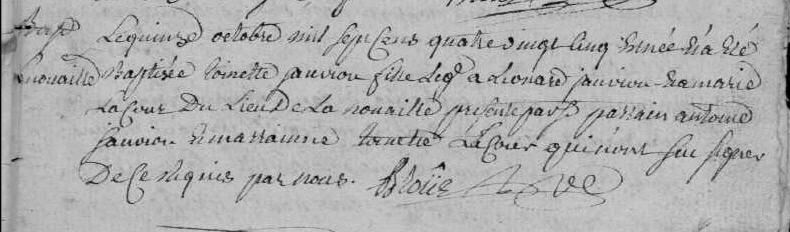 Bapt Le quinze octobre mil sept cens quatre vingt cinq est née et a eté
Lnouaille Baptisée toinette janviou fille leg. a Leonard janviou et a marie
La cour du Lieu de La nouaille presente par. parrain antoine
janviou et marrainne toinette La Cour qui n'ont sçu signer
de ce requis par nous.